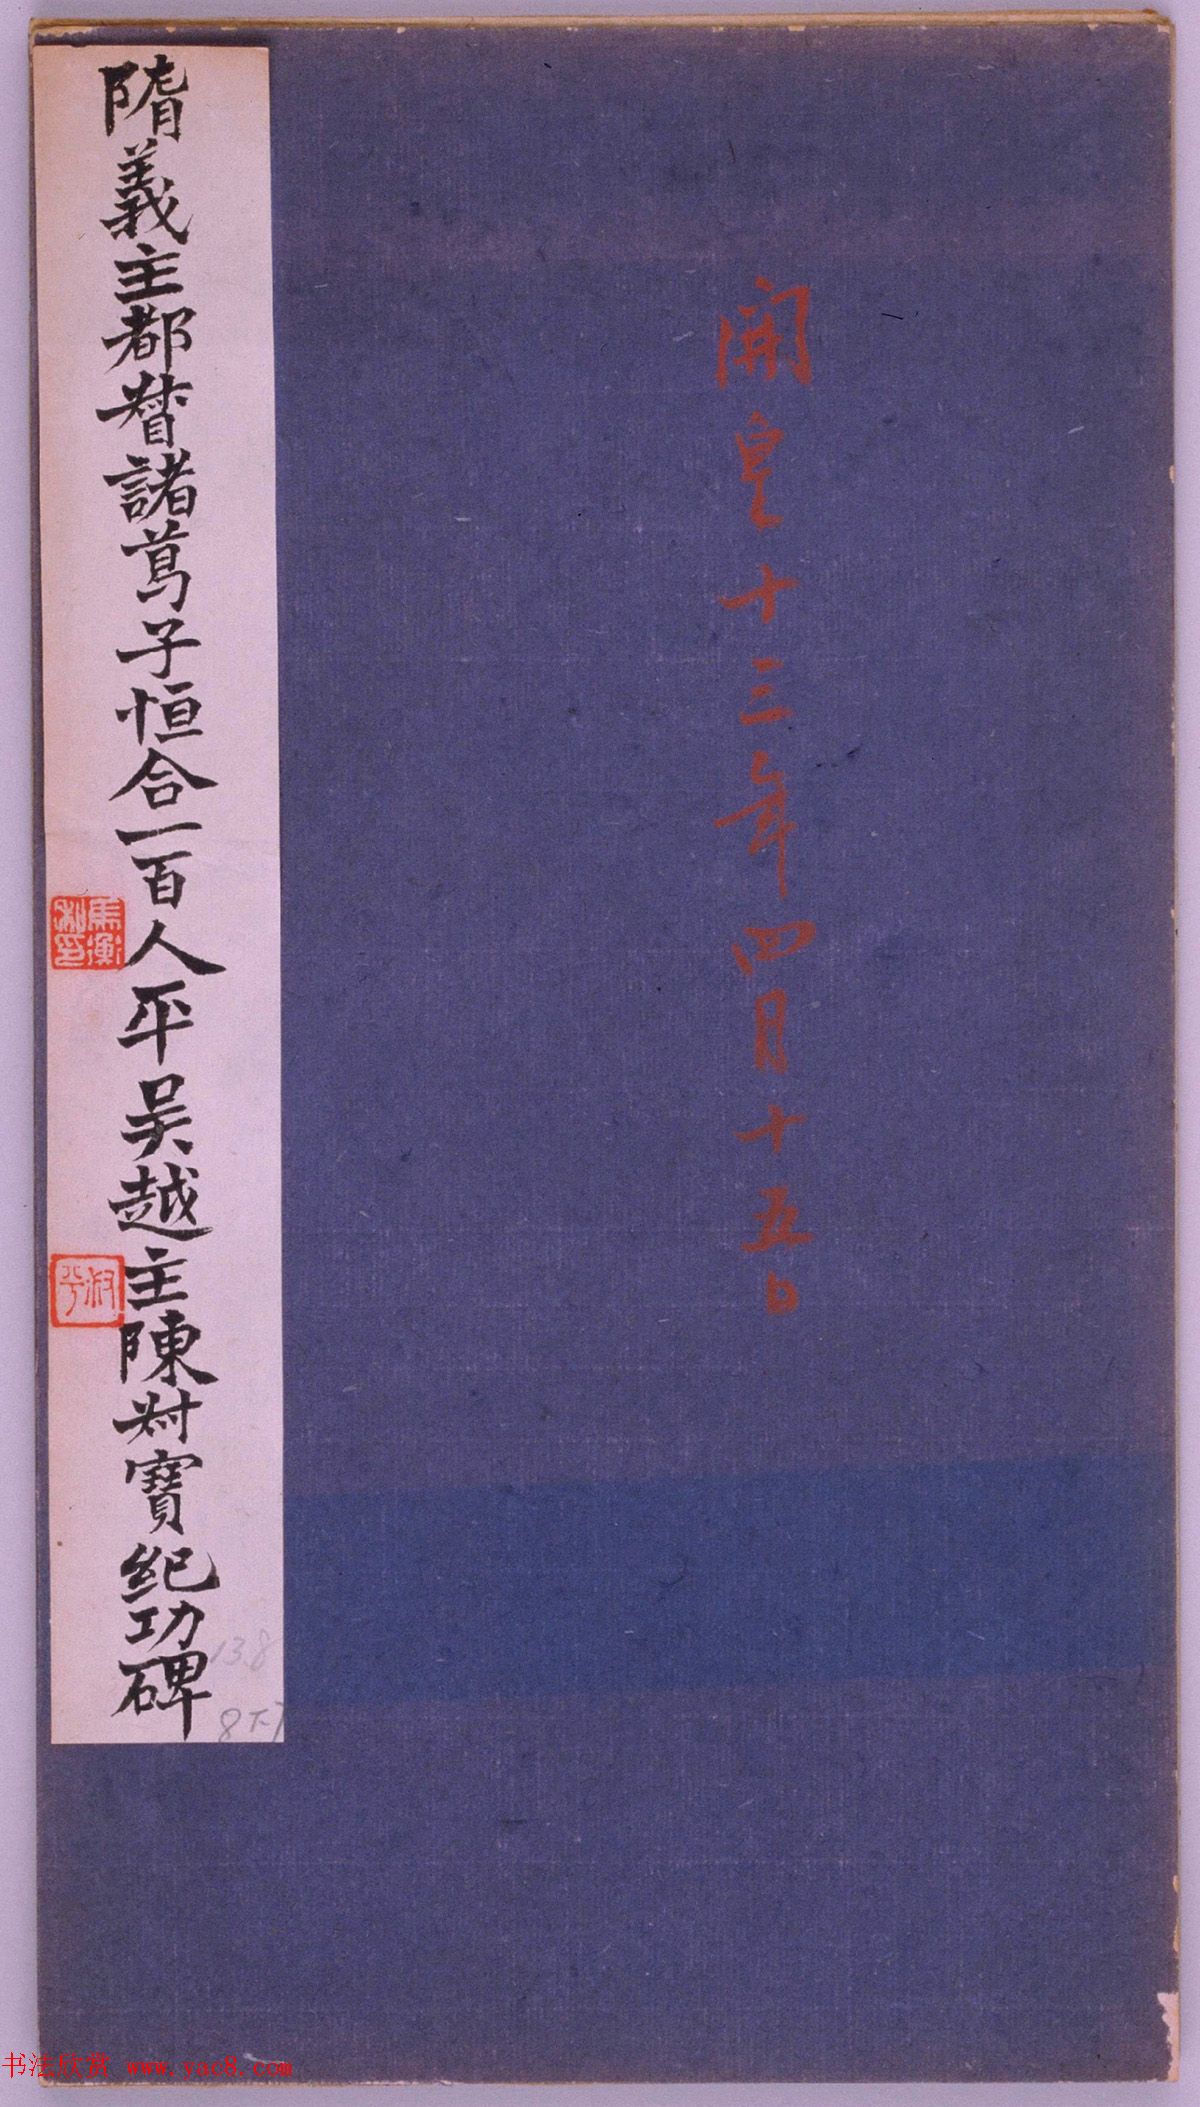 開皇十三年四月十五日
隋義主都督諸葛子恒合一百人平吳越主陳叔寶紀功碑
馬衡私印
叔平
138
8下7
书法欣赏 www.yac8.com